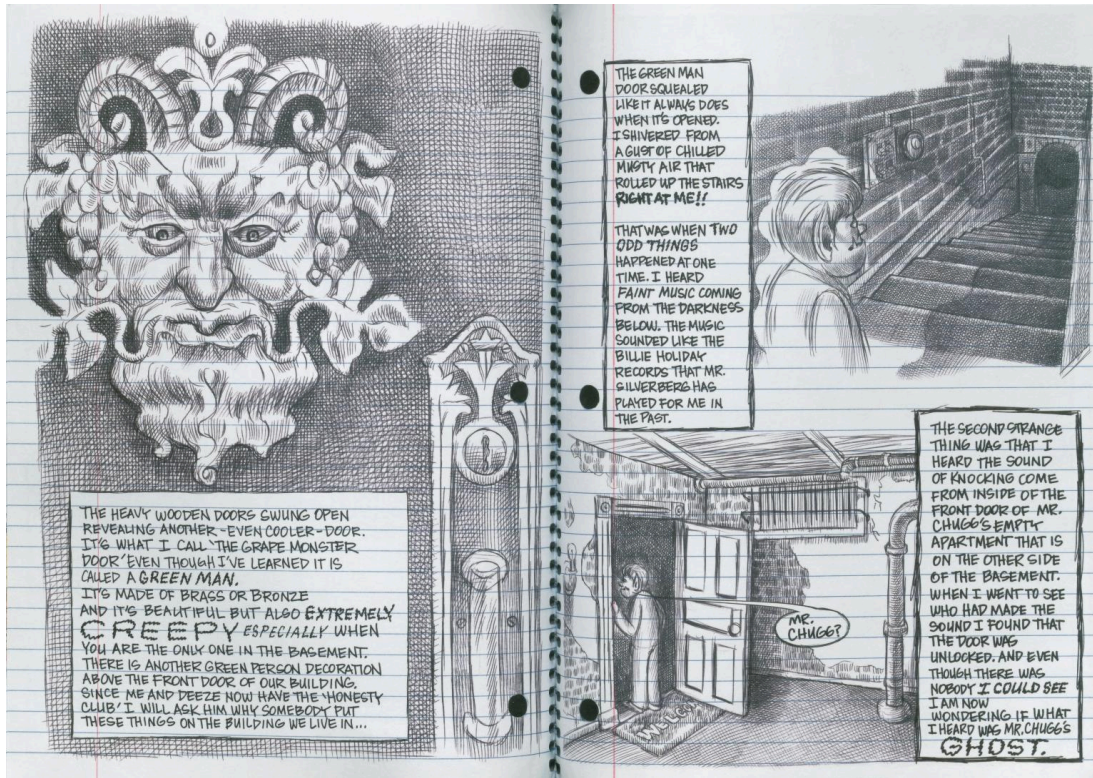 THE HEAVY WOODEN DOORS SWUNG OPEN
REVEALING ANOTHER-EVEN COOLER-DOOR.
IT'S WHAT I CALL 'THE GRAPE MONSTER
DOOR' EVEN THOUGH I'VE LEARNED IT IS
CALLED A GREEN MAN.
IT'S MADE OF BRASS OR BRONZE
AND IT'S BEAUTIFUL BUT ALSO EXTREMELY
CREEPY ESPECIALLY WHEN
YOU ARE THE ONLY ONE IN THE BASEMENT.
THERE IS ANOTHER GREEN PERSON DECORATION
ABOVE THE FRONT DOOR OF OUR BUILDING.
SINCE ME AND DEEZE NOW HAVE THE 'HONESTY
CLUB' I WILL ASK HIM WHY SOMEBODY PUT
THESE THINGS ON THE BUILDING WE LIVE IN...
THE GREEN MAN
DOOR SQUEALED
LIKE IT ALWAYS DOES
WHEN IT'S OPENED.
I SHIVERED FROM
A GUST OF CHILLED
MUSTY AIR THAT
ROLLED UP THE STAIRS
RIGHT AT ME!!
THAT WAS WHEN TWO
ODD THINGS
HAPPENED AT ONE
TIME. I HEARD
FAINT MUSIC COMING
FROM THE DARKNESS
BELOW. THE MUSIC
SOUNDED LIKE THE
BILLIE HOLIDAY
RECORDS THAT MR.
SILVERBERG HAS
PLAYED FOR ME IN
THE PAST.
MR.
CHUGG?
THE SECOND STRANGE
THING WAS THAT I
HEARD THE SOUND
OF KNOCKING COME
FROM INSIDE OF THE
FRONT DOOR OF MR.
CHUGG'S EMPTY
APARTMENT THAT IS
ON THE OTHER SIDE
OF THE BASEMENT.
WHEN I WENT TO SEE
WHO HAD MADE THE
SOUND I FOUND THAT
THE DOOR WAS
UNLOCKED. AND EVEN
THOUGH THERE WAS
NOBODY I COULD SEE
I AM NOW
WONDERING IF WHAT
I HEARD WAS MR. CHUGG'S
GHOST.